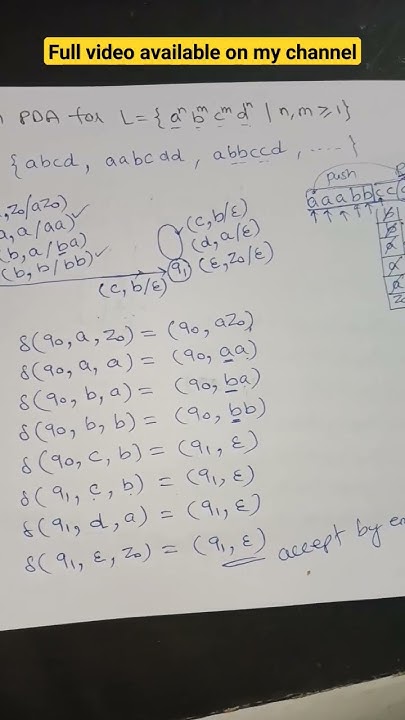 Full video available on my channel
PDA for L = { aⁿ bᵐ cᵐ dⁿ | n, m ≥ 1 }
{ abcd, aabcdd, abbccd, .... }
push
aaabbcc
, z₀/az₀)
a, a/aa)
(b, a/ba)
(b, b/bb)
(c, b/ε)
(d, a/ε)
(ε, z₀/ε)
q₁
(c, b/ε)
b
b
a
a
a
z₀
δ(q₀, a, z₀) = (q₀, az₀)
δ(q₀, a, a) = (q₀, aa)
δ(q₀, b, a) = (q₀, ba)
δ(q₀, b, b) = (q₀, bb)
δ(q₀, c, b) = (q₁, ε)
δ(q₁, c, b) = (q₁, ε)
δ(q₁, d, a) = (q₁, ε)
δ(q₁, ε, z₀) = (q₁, ε) accept by